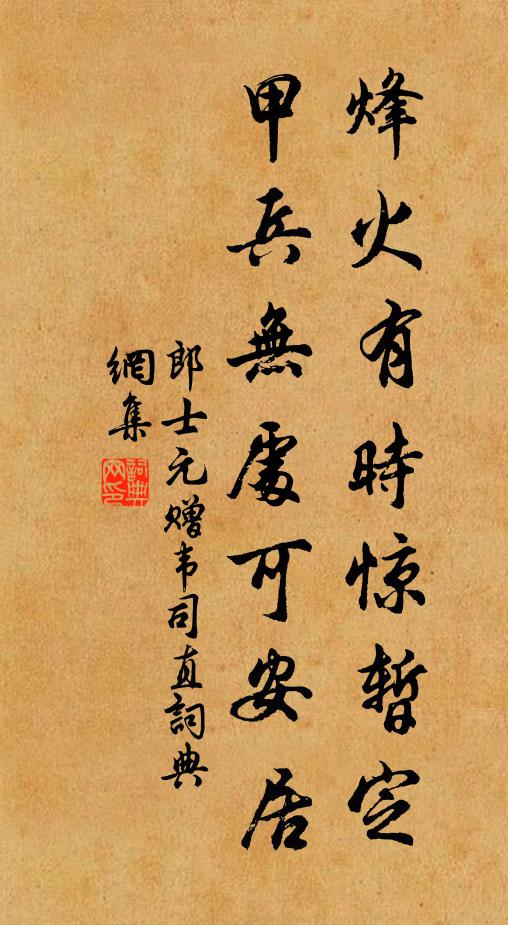 烽火有時惊暫定
甲兵無處可安居
郎士元赠韦司直詞典
網集
詞典
网印